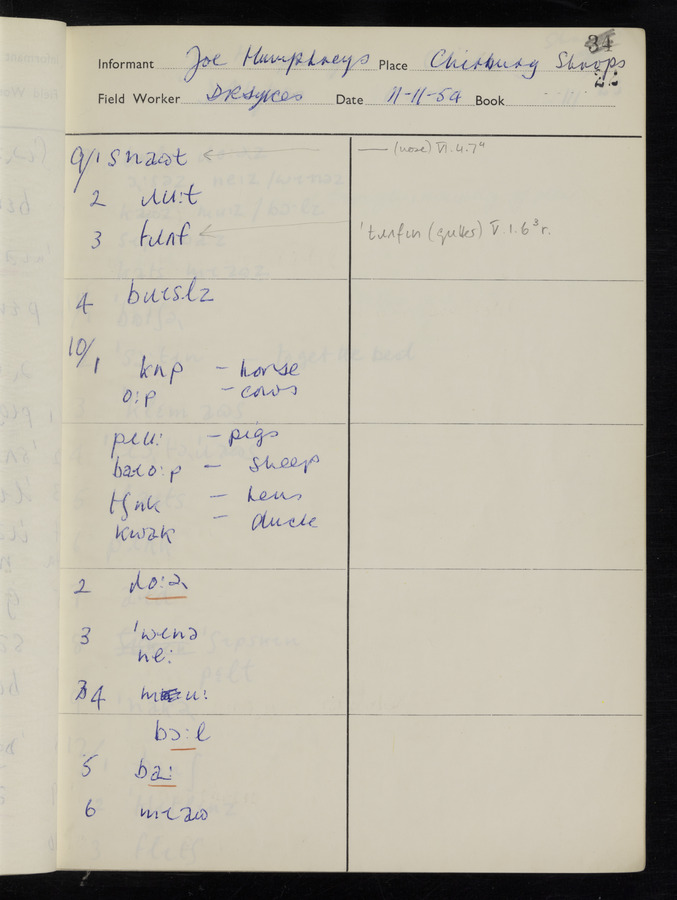 34
Informant Joe Humphreys Place Chirbury Shrops
22
Field Worker DRSykes Date 11-11-54 Book
9/1 snaʊt ← — (nose) VI.4.7⁴
2 ɹuːt
3 tɹʌf ← 'tɹʌfɪn (gullet) V.1.6³r.
4 bɹɪslz
10/1 kʌp — horse
oːp — cows
pɪuː — pigs
baɪoːp — sheep
tʃʌk — hens
kwak — duck
2 ɹoːə
3 'wɪnə
neː
4 muː
bɔːl
5 baː
6 mɪaʊ